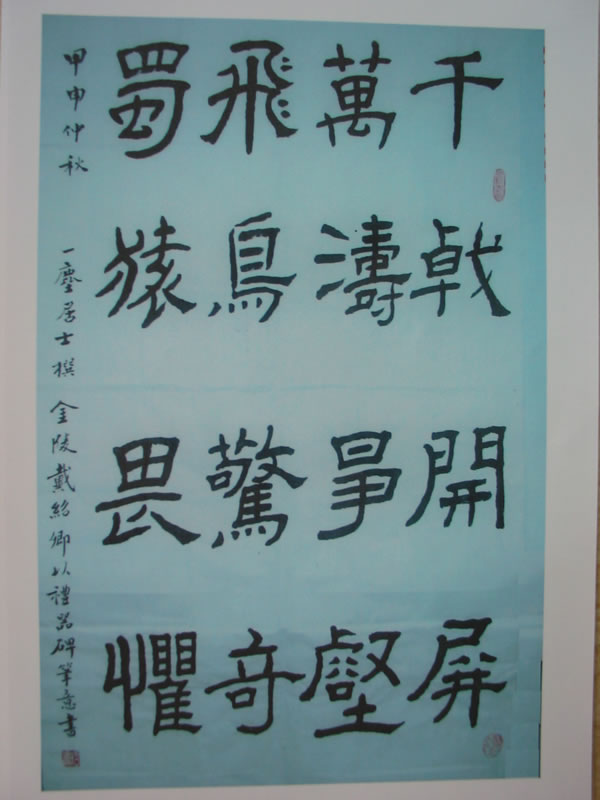 千戟開屏
萬濤爭壑
飛鳥驚奇
蜀猿畏懼
甲申仲秋 一塵居士撰 金陵戴紹卿以禮器碑筆意書